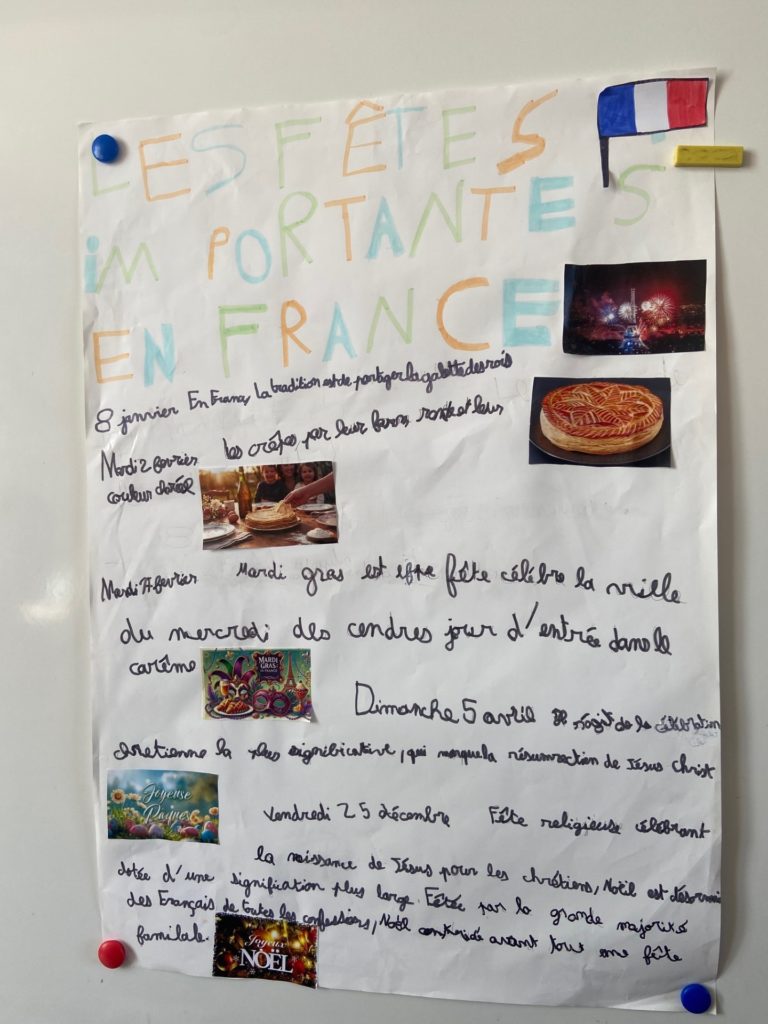 LES FÊTES
iMPORTANTES
EN FRANCE
8 janvier En France, la tradition est de partager la galette des rois
Mardi 2 février les crêpes par leur forme ronde et leur
couleur dorée
Mardi 17 février Mardi gras est une fête célèbre la veille
du mercredi des cendres jour d'entrée dans le
carême
MARDI GRAS
Dimanche 5 avril Il s'agit de la célébration
chretienne la plus significative, qui marque la résurrection de Jésus Christ
Joyeuse
Pâques
Vendredi 25 décembre Fête religieuse célébrant
la naissance de Jésus pour les chrétiens, Noël est désormais
dotée d'une signification plus large. Fêtée par la grande majorité
des Français de toutes les confessions, Noël avant tout une fête
familale.
Joyeux
NOËL